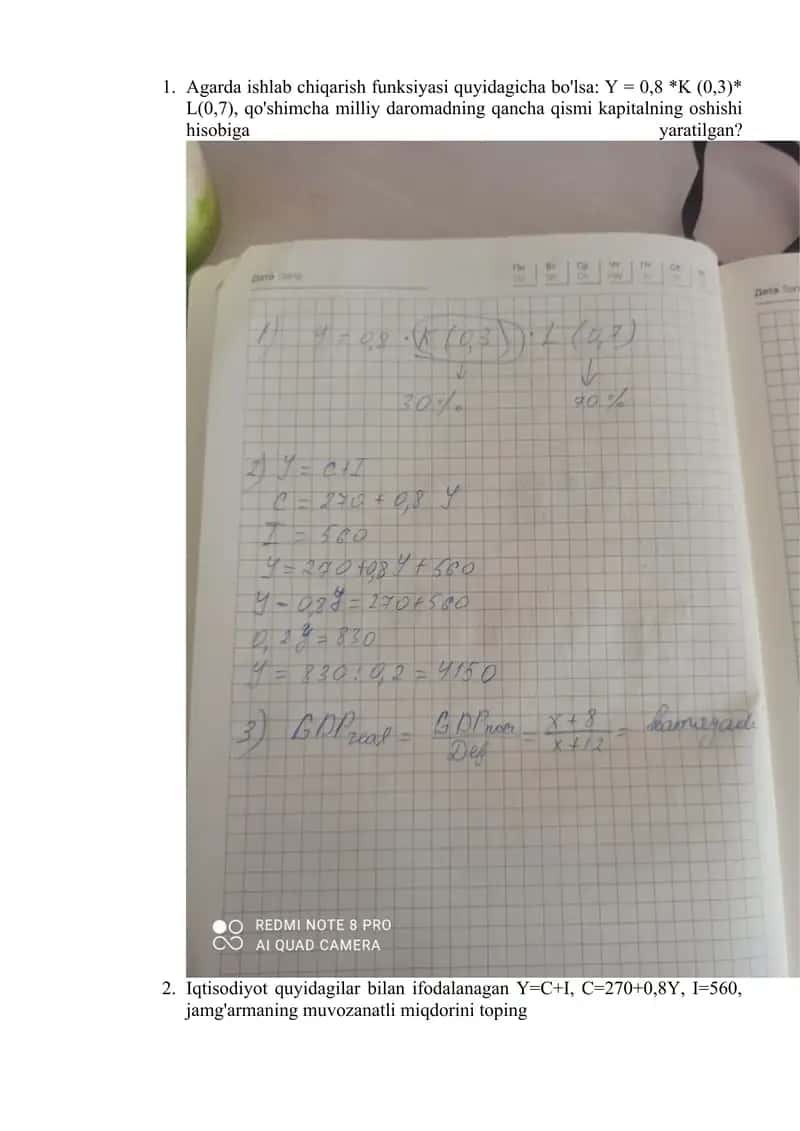 1. Agarda ishlab chiqarish funksiyasi quyidagicha bo'lsa: Y = 0,8 *K (0,3)*
L(0,7), qo'shimcha milliy daromadning qancha qismi kapitalning oshishi
hisobiga yaratilgan?
Дата
Пн Вт Ср Чт Пт Сб
Дата
1) Y = 0,8 · (K (0,3)) · L (0,7)
↓ ↓
30% 70%
2) Y = C+I
C = 270 + 0,8 Y
I = 560
Y = 270+0,8Y+560
Y - 0,8Y = 270+560
0,2Y = 830
Y = 830 : 0,2 = 4150
3) GDPreal = GDPnom / Def = x+8 / x+12 = kamayadi
REDMI NOTE 8 PRO
AI QUAD CAMERA
2. Iqtisodiyot quyidagilar bilan ifodalanagan Y=C+I, C=270+0,8Y, I=560,
jamg'armaning muvozanatli miqdorini toping